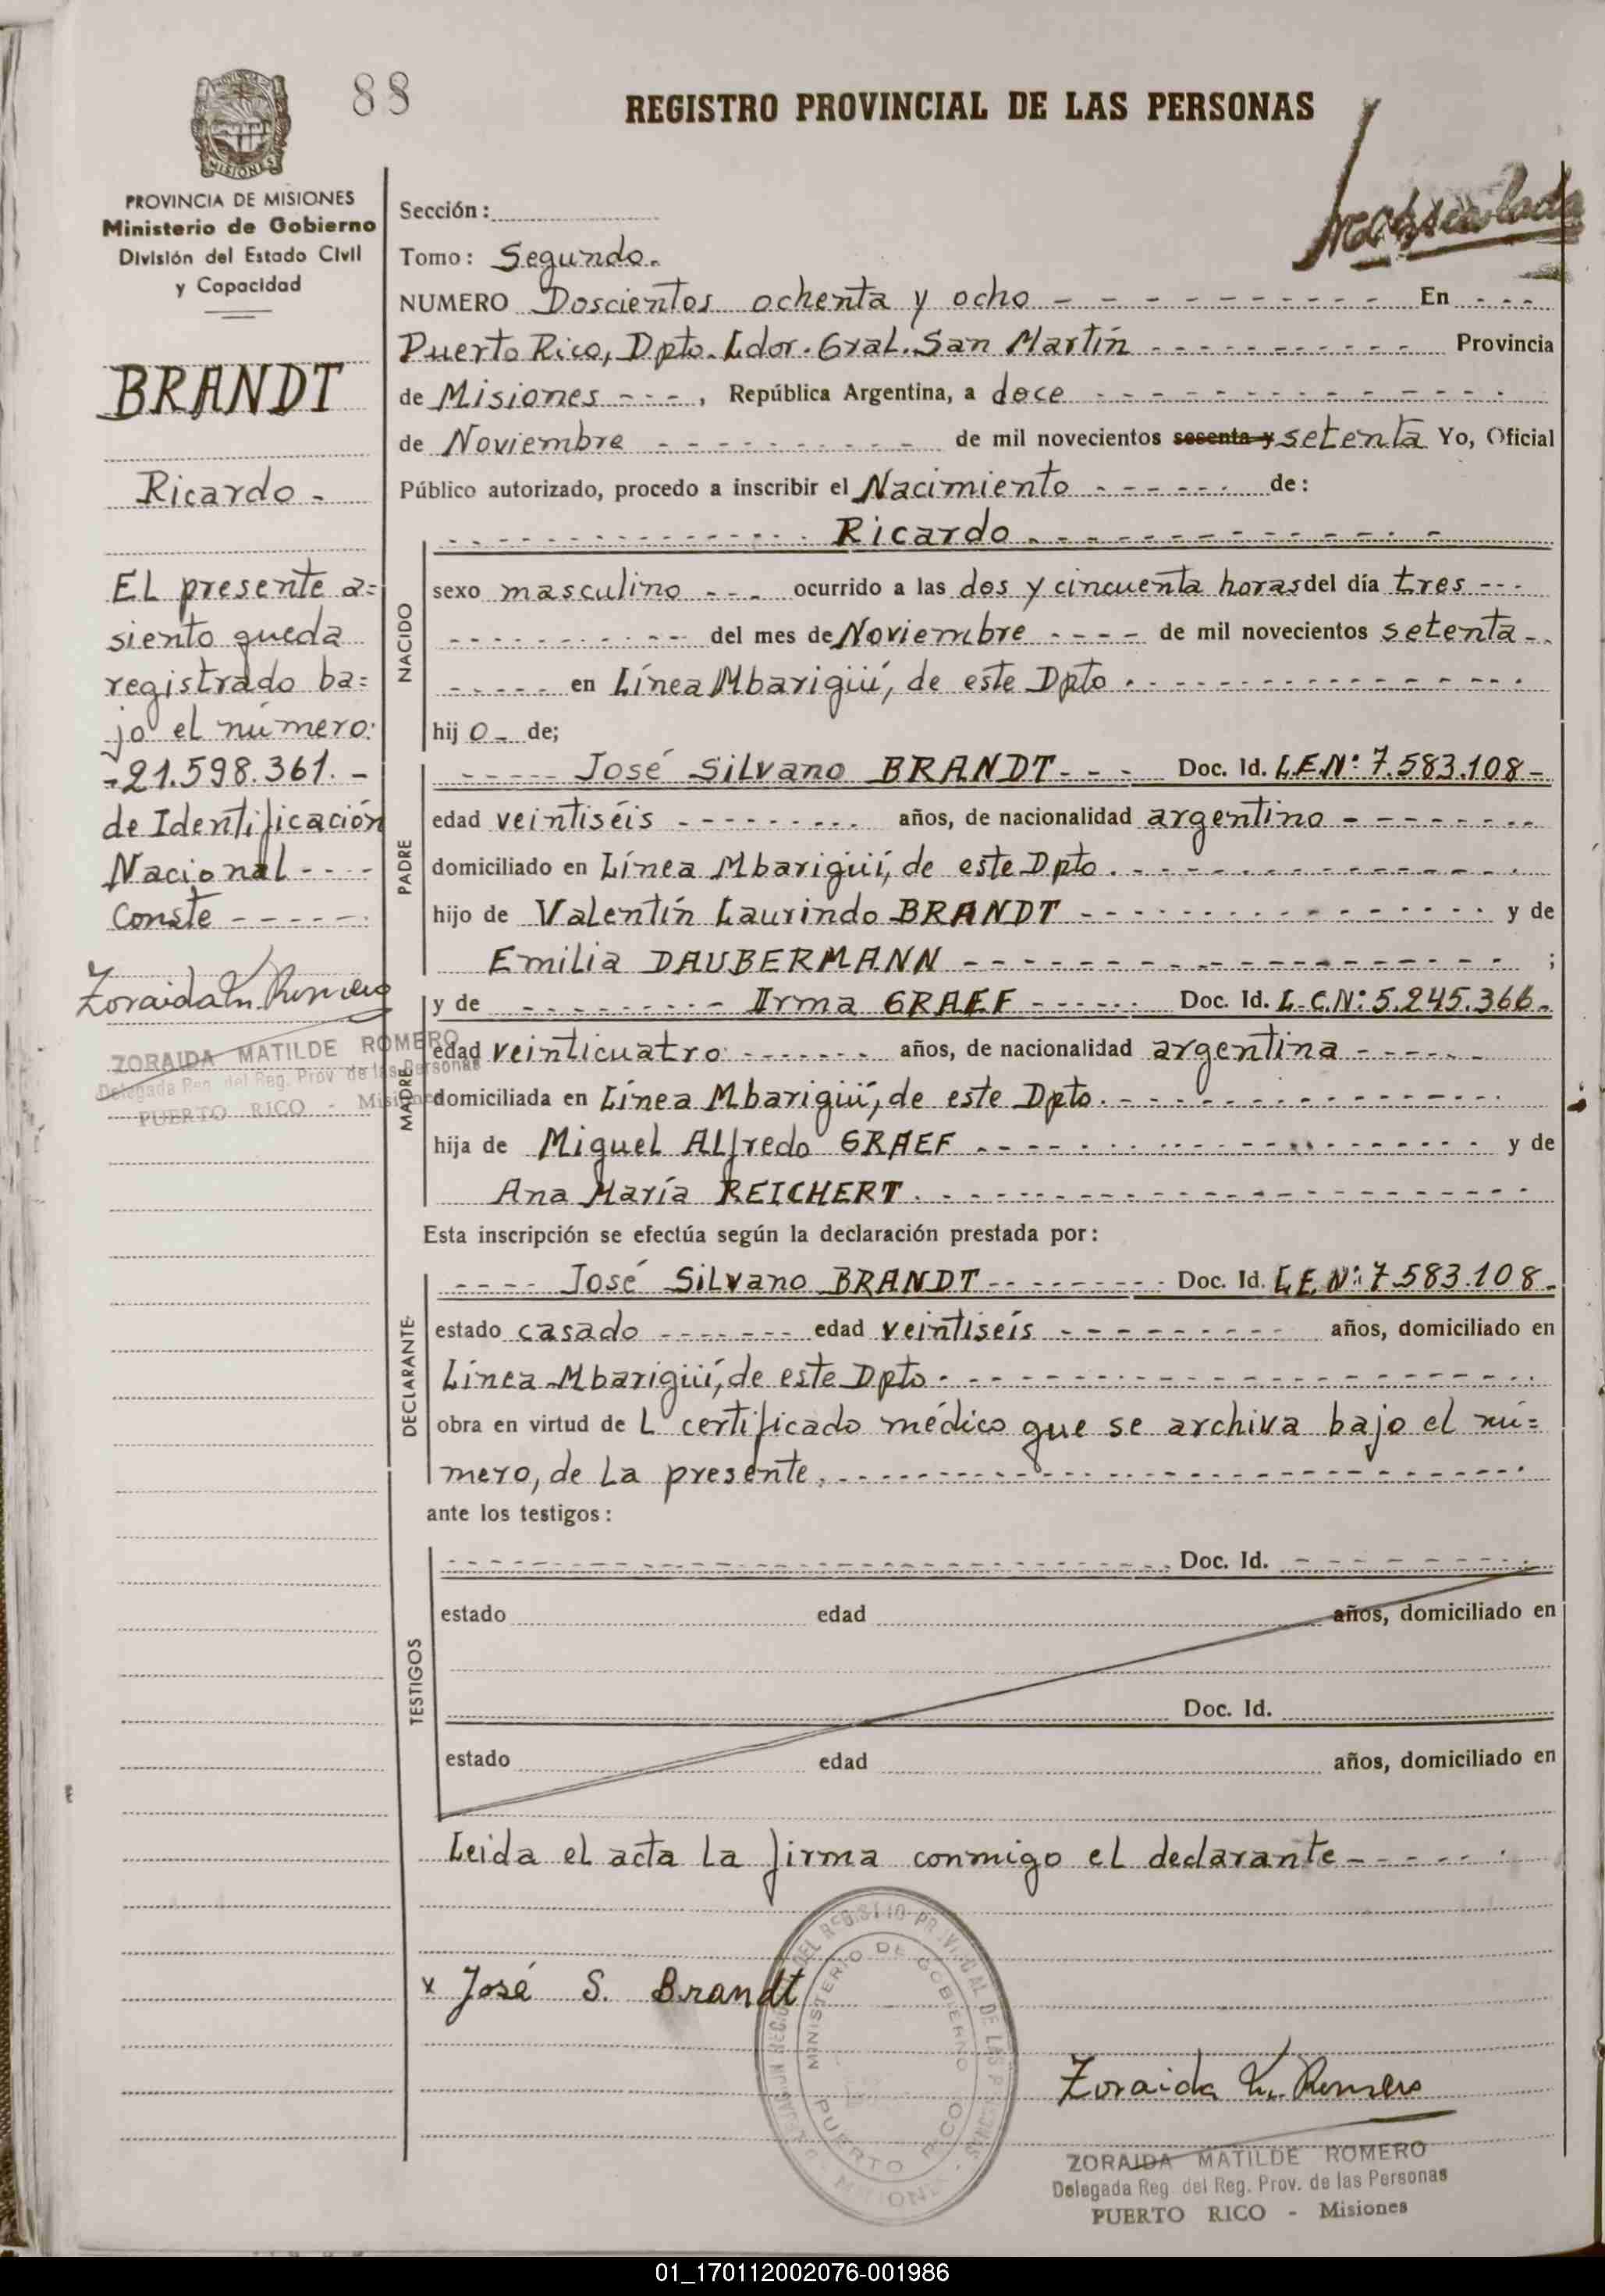 88
REGISTRO PROVINCIAL DE LAS PERSONAS
MISIONES
PROVINCIA DE MISIONES
Ministerio de Gobierno
División del Estado Civil
y Capacidad
BRANDT
Ricardo -
EL presente a=
siento queda
registrado ba=
jo el número:
-21.598.361.-
de Identificación
Nacional - - - -
Conste - - - - - -
Zoraida M. Romero
ZORAIDA MATILDE ROMERO
Delegada Reg. del Reg. Prov. de las Personas
PUERTO RICO - Misiones
Sección:
Tomo: Segundo.
NUMERO Doscientos ochenta y ocho - - - - - - - - - - En - - -
Puerto Rico, Dpto. Ldor. Gral. San Martín - - - - - - - - - - Provincia
de Misiones - - -, República Argentina, a doce - - - - - - - - - -
de Noviembre - - - - - - - - - de mil novecientos sesenta y setenta Yo, Oficial
Público autorizado, procedo a inscribir el Nacimiento - - - - - - de:
- - - - - - - - - - Ricardo - - - - - - - - - -
NACIDO
sexo masculino - - - ocurrido a las dos y cincuenta horas del día tres - - -
- - - - - - - - - del mes de Noviembre - - - - de mil novecientos setenta - -
- - - - - en Línea Mbarigüí, de este Dpto. - - - - - - - - - -
hij o - de;
PADRE
- - - - - José Silvano BRANDT - - - Doc. Id. L.E.Nº 7.583.108 -
edad veintiséis - - - - - - - - - años, de nacionalidad argentino - - - - - - - -
domiciliado en Línea Mbarigüí, de este Dpto. - - - - - - - - - -
hijo de Valentín Laurindo BRANDT - - - - - - - - - - y de
Emilia DAUBERMANN - - - - - - - - - - ;
MADRE
y de - - - - - - - - Irma GRAEF - - - - - - Doc. Id. L.C.Nº 5.245.366 -
edad veinticuatro - - - - - - - años, de nacionalidad argentina - - - - - -
domiciliada en Línea Mbarigüí, de este Dpto. - - - - - - - - - -
hija de Miguel Alfredo GRAEF - - - - - - - - - - y de
Ana María REICHERT. - - - - - - - - - -
Esta inscripción se efectúa según la declaración prestada por:
DECLARANTE
- - - - José Silvano BRANDT - - - - - - - - Doc. Id. L.E.Nº 7.583.108 -
estado casado - - - - - - - edad veintiséis - - - - - - - - - años, domiciliado en
Línea Mbarigüí, de este Dpto. - - - - - - - - - -
obra en virtud de L certificado médico que se archiva bajo el nú=
mero, de la presente. - - - - - - - - - -
ante los testigos:
TESTIGOS
- - - - - - - - - - Doc. Id. - - - - - - - -
estado edad años, domiciliado en
Doc. Id.
estado edad años, domiciliado en
Leida el acta la firma conmigo el declarante - - - - - -
x José S. Brandt
MINISTERIO DE GOBIERNO
PUERTO RICO
Zoraida M. Romero
ZORAIDA MATILDE ROMERO
Delegada Reg. del Reg. Prov. de las Personas
PUERTO RICO - Misiones
01_170112002076-001986